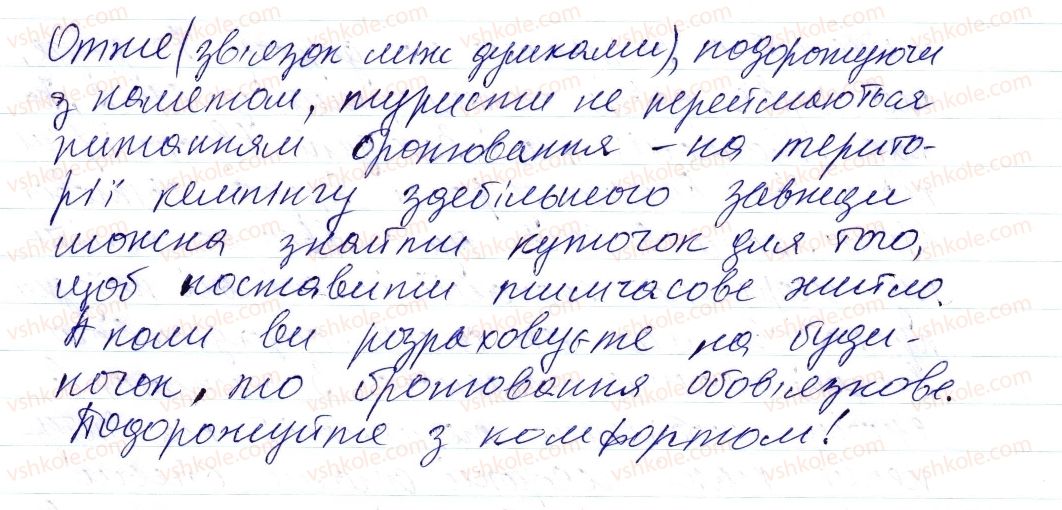 Отже (зв'язок між думками), подорожуючи
з наметом, туристи не переймаються
питанням бронювання – на терито-
рії кемпінгу здебільшого завжди
можна знайти куточок для того,
щоб поставити тимчасове житло.
А коли ви розраховуєте на буди-
ночок, то бронювання обов'язкове.
Подорожуйте з комфортом!